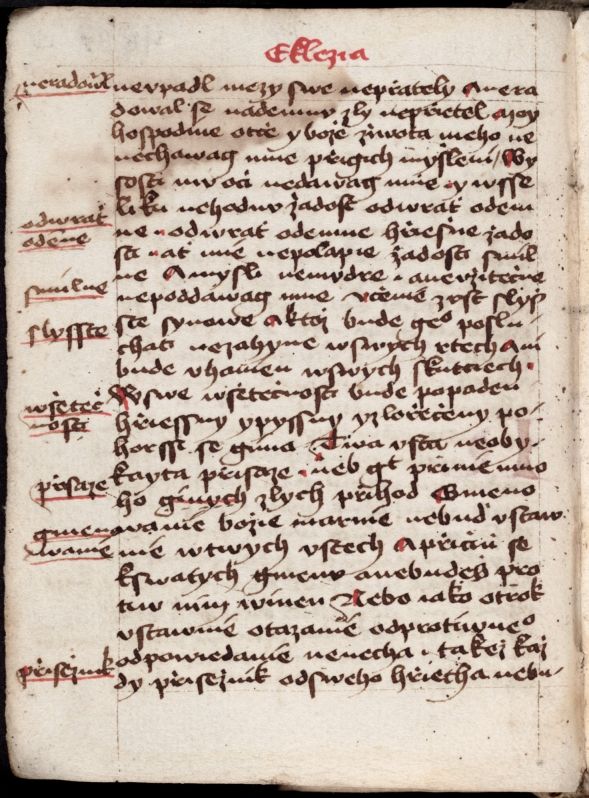 Eklezia
neradowal
nevpadl mezy swe neprately Anera
dowal se nademnu zly neprietel azoy
hospodine otcze y boze ziwota meho ne
nechawag mne przigich mysleni Wy
sosti mv oci nedawag mne y wsse
liku nehodnv zadost odwrat odem
ne odwrat odemne hriesne zado
sti at mie nepolapie zadosti smil
ne A mysli nemudre anevziteczne
nepoddawag mne vczenie zvst slys
ste synowe Aktoz bude geo poslu
chati nezahyne wswych rtech Ani
bude vhanien wswych skutciech
Wswe wsseteczenosti bude popaden
hriessny ypyssny yzlorzeczeny po
horsse se gima Twa vsta neoby
kayta prisaze neb gt prinie mno
ho ginych zlych prihod Gmeno
wanie bozie marnie nebud vstaw
nie wtwych vstech Apriczin se
kswatych gmenv anebudess pro
tiw nim winen Nebo iako otrok
vstawnie otazanie odprotiwneo
odpowiedanie nenecha takez kaz
dy prisezník odsweho hriecha nebu
odwrat
odemne
smilne
slysste
wssetecz
nosti
prisaze
gmeno
wanie
prisezník